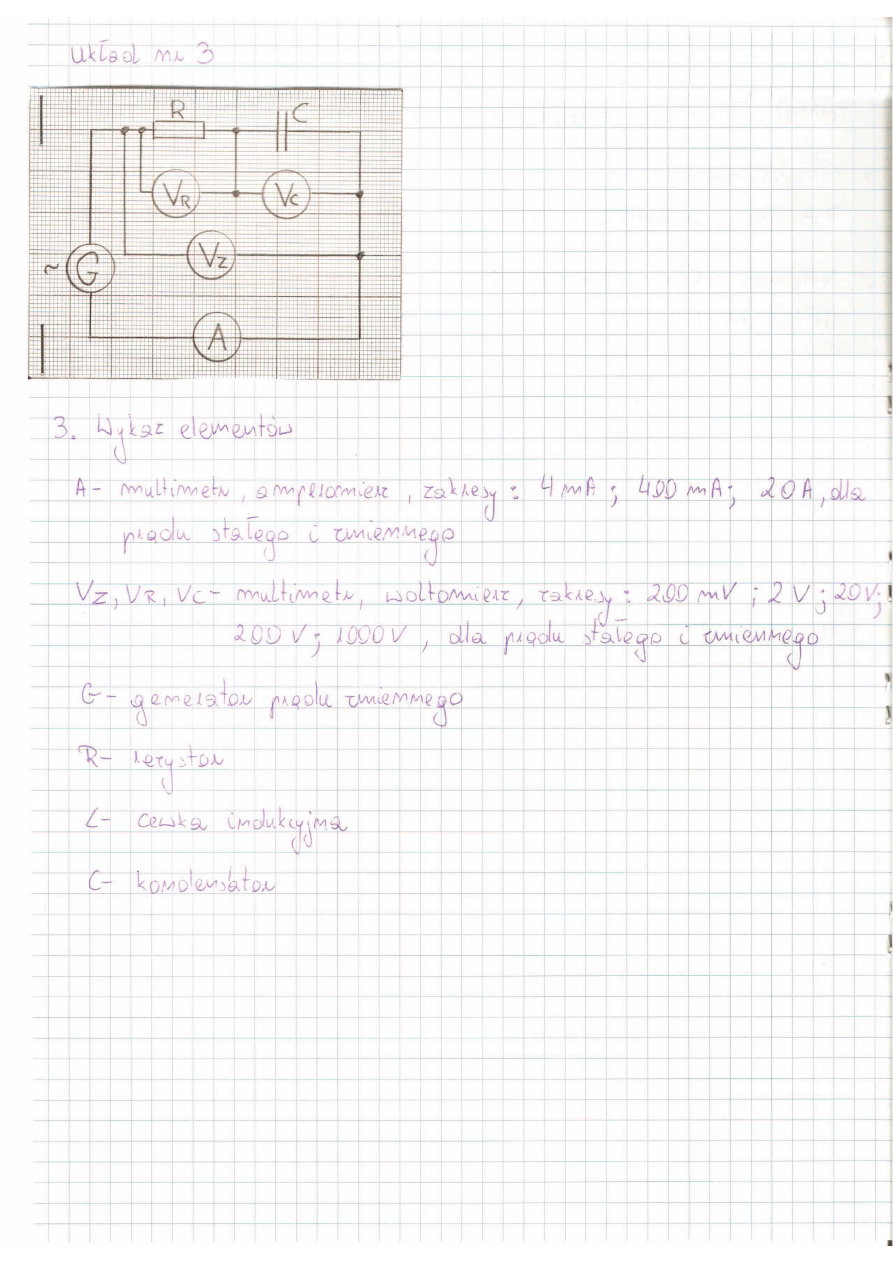 Układ nr 3
R
C
VR
VC
VZ
~
G
A
3. Wykaz elementów
A- multimetr, amperomierz, zakresy: 4 mA; 400 mA; 20A, dla
prądu stałego i zmiennego
VZ, VR, VC- multimetr, woltomierz, zakresy: 200 mV; 2 V; 20V;
200 V; 1000V, dla prądu stałego i zmiennego
G- generator prądu zmiennego
R- rezystor
L- cewka indukcyjna
C- kondensator